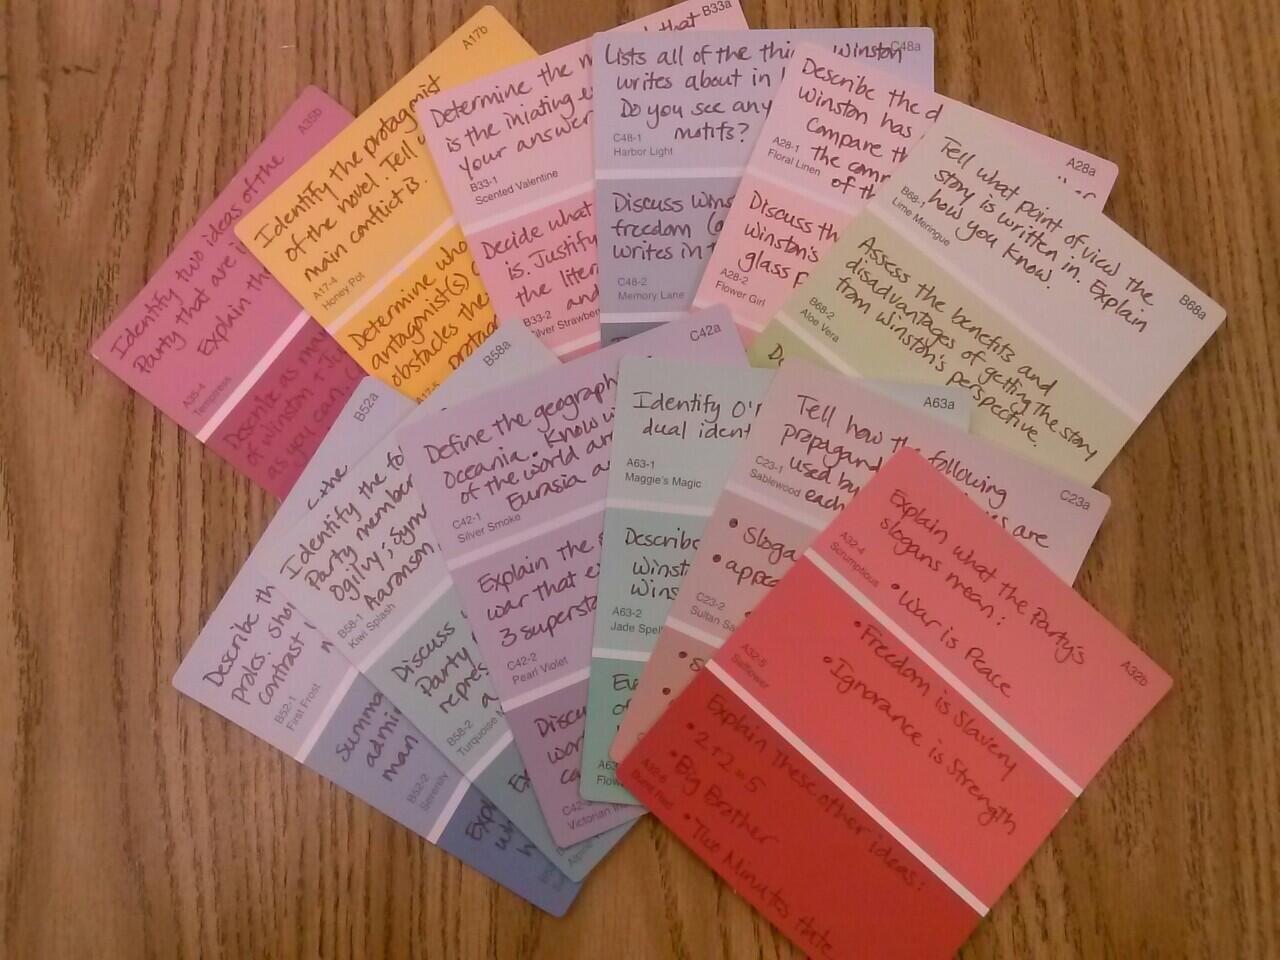 A35b
Identify two ideas of the
Party that are
Explain th
A35-4
Temptress
Describe as ma
of Winston + Ju
as you can.
A17b
Identify the protagonist
of the novel. Tell
main conflict is.
A17-4
Honey Pot
Determine who
antagonist(s)
obstacles the
protag
A17-5
B33a
Determine the m that
is the iniating e
your answer
B33-1
Scented Valentine
Decide what
is. Justify
the liter
and
B33-2
Silver Strawber
C48a
Lists all of the thi Winston
writes about in
Do you see any
motifs?
C48-1
Harbor Light
Discuss Wins
freedom
writes in
C48-2
Memory Lane
A28a
Describe the d
Winston has
Compare th
the com
of th
A28-1
Floral Linen
Discuss th
Winston's
glass p
A28-2
Flower Girl
B68a
Tell what point of view the
story is written in. Explain
how you know.
B68-1
Lime Meringue
Assess the benefits and
disadvantages of getting the story
from Winston's perspective.
B68-2
Aloe Vera
B52a
the
Describe th
proles. Sho
contrast
B52-1
First Frost
Summa
admi
man
B52-2
Serenity
Expl
B58a
Identify the fo
Party member
Ogilvy; Sym
Aaronson
B58-1
Kiwi Splash
Discuss
Party
repres
B58-2
Turquoise
C42a
Define the geograph
Oceania. Know w
of the world are
Eurasia a
C42-1
Silver Smoke
Explain the
war that e
3 supersta
C42-2
Pearl Violet
Discu
wor
Victorian
A63a
Identify O'
dual ident
A63-1
Maggie's Magic
Describe
Winst
Wins
A63-2
Jade Spell
Ev
of
A63
Flow
C23a
Tell how the following
propagand are
used by
each
C23-1
Sablewood
• Sloga
• appea
C23-2
Sultan Sa
A32b
Explain what the Party's
slogans mean:
• War is Peace
• Freedom is Slavery
• Ignorance is Strength
A32-4
Scrumptious
A32-5
Safflower
Explain these other ideas:
• 2+2=5
• Big Brother
• Two Minutes Hate
A32-6